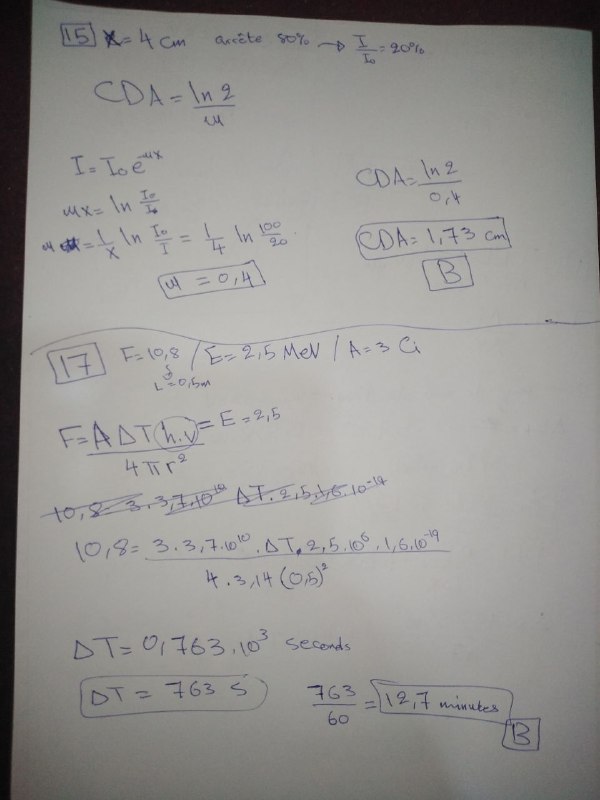 15 x = 4 cm arrête 80% → I/I₀ = 20%
CDA = ln 2 / μ
I = I₀ e^-μx
μx = ln I₀/I₀
μ = 1/x ln I₀/I = 1/4 ln 100/20
μ = 0,4
CDA = ln 2 / 0,4
CDA = 1,73 cm
B
17 F = 10,8 / E = 2,5 MeV / A = 3 Ci
L = 0,5m
F = A ΔT h.ν / 4πr² = E = 2,5
10,8 = 3.3,7.10¹⁰ ΔT.2,5.1,6.10⁻¹⁹
10,8 = 3.3,7.10¹⁰.ΔT.2,5.10⁶.1,6.10⁻¹⁹ / 4.3,14(0,5)²
ΔT = 0,763.10³ seconds
ΔT = 763 s
763/60 = 12,7 minutes
B